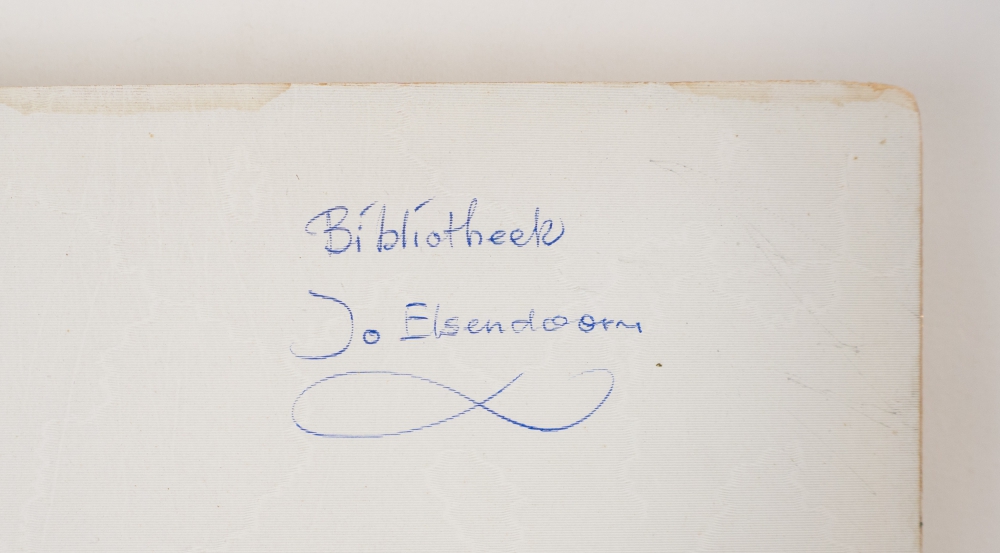 Bibliotheek
Jo Elsendoorn